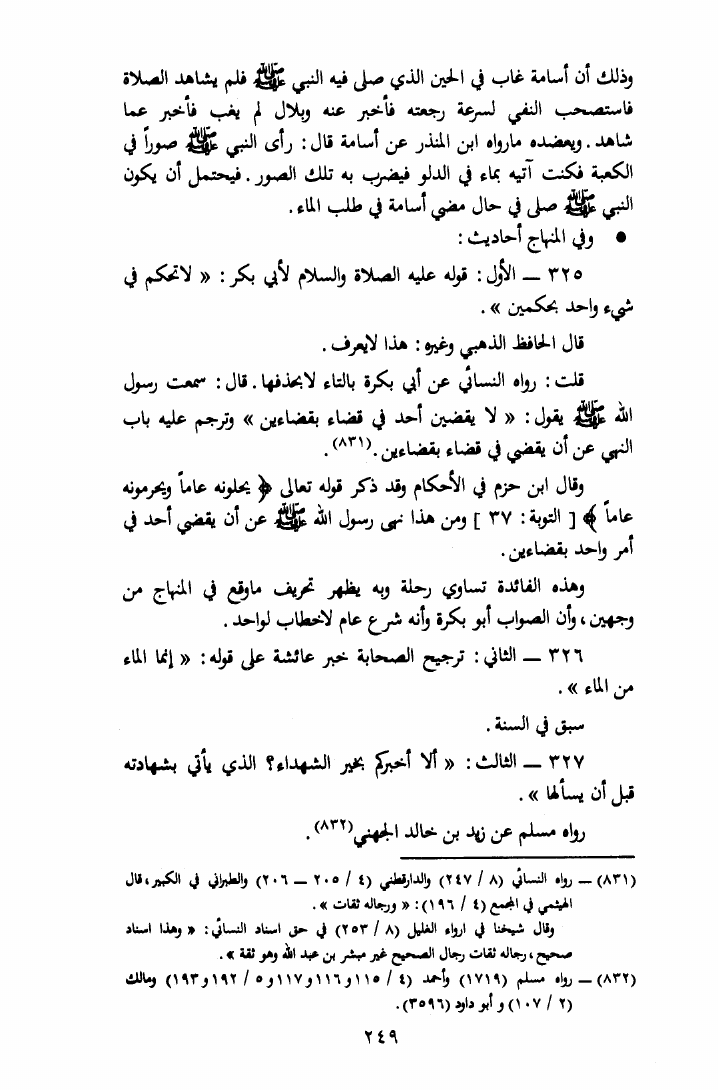 وذلك أن أسامة غاب في الحين الذي صلى فيه النبي ﷺ فلم يشاهد الصلاة
فاستصحب النفي لسرعة رجعته فأخبر عنه وبلال لم يغب فأخبر عما
شاهد. ويعضده مارواه ابن المنذر عن أسامة قال: رأى النبي ﷺ صوراً في
الكعبة فكنت آتيه بماء في الدلو فيضرب به تلك الصور. فيحتمل أن يكون
النبي ﷺ صلى في حال مضي أسامة في طلب الماء.
● وفي المنهاج أحاديث:
٣٢٥ ــ الأول: قوله عليه الصلاة والسلام لأبي بكر: « لاتحكم في
شيء واحد بحكمين ».
قال الحافظ الذهبي وغيره: هذا لايعرف.
قلت: رواه النسائي عن أبي بكرة بالتاء لابحذفها. قال: سمعت رسول
الله ﷺ يقول: « لا يقضين أحد في قضاء بقضاءين » وترجم عليه باب
النهي عن أن يقضي في قضاء بقضاءين.(٨٣١).
وقال ابن حزم في الأحكام وقد ذكر قوله تعالى ﴿ يحلونه عاماً ويحرمونه
عاماً ﴾ [ التوبة: ٣٧ ] ومن هذا نهى رسول الله ﷺ عن أن يقضي أحد في
أمر واحد بقضاءين.
وهذه الفائدة تساوي رحلة وبه يظهر تحريف ماوقع في المنهاج من
وجهين، وأن الصواب أبو بكرة وأنه شرع عام لاخطاب لواحد.
٣٢٦ ــ الثاني: ترجيح الصحابة خبر عائشة على قوله: « إنما الماء
من الماء ».
سبق في السنة.
٣٢٧ ــ الثالث: « ألا أخبركم بخير الشهداء؟ الذي يأتي بشهادته
قبل أن يسألها ».
رواه مسلم عن زيد بن خالد الجهني(٨٣٢).
(٨٣١) ــ رواه النسائي (٨ / ٢٤٧) والدارقطني (٤ / ٢٠٥ ــ ٢٠٦) والطبراني في الكبير، قال
الهيثمي في المجمع (٤ / ١٩٦): « ورجاله ثقات ».
وقال شيخنا في ارواء الغليل (٨ / ٢٥٣) في حق اسناد النسائي: « وهذا اسناد
صحيح، رجاله ثقات رجال الصحيح غير مبشر بن عبد الله وهو ثقة ».
(٨٣٢) ــ رواه مسلم (١٧١٩) وأحمد (٤ / ١١٥ و١١٦ و١١٧ و٥ / ١٩٢ و١٩٣) ومالك
(٢ / ١٠٧) و أبو داود (٣٥٩٦).
٢٤٩